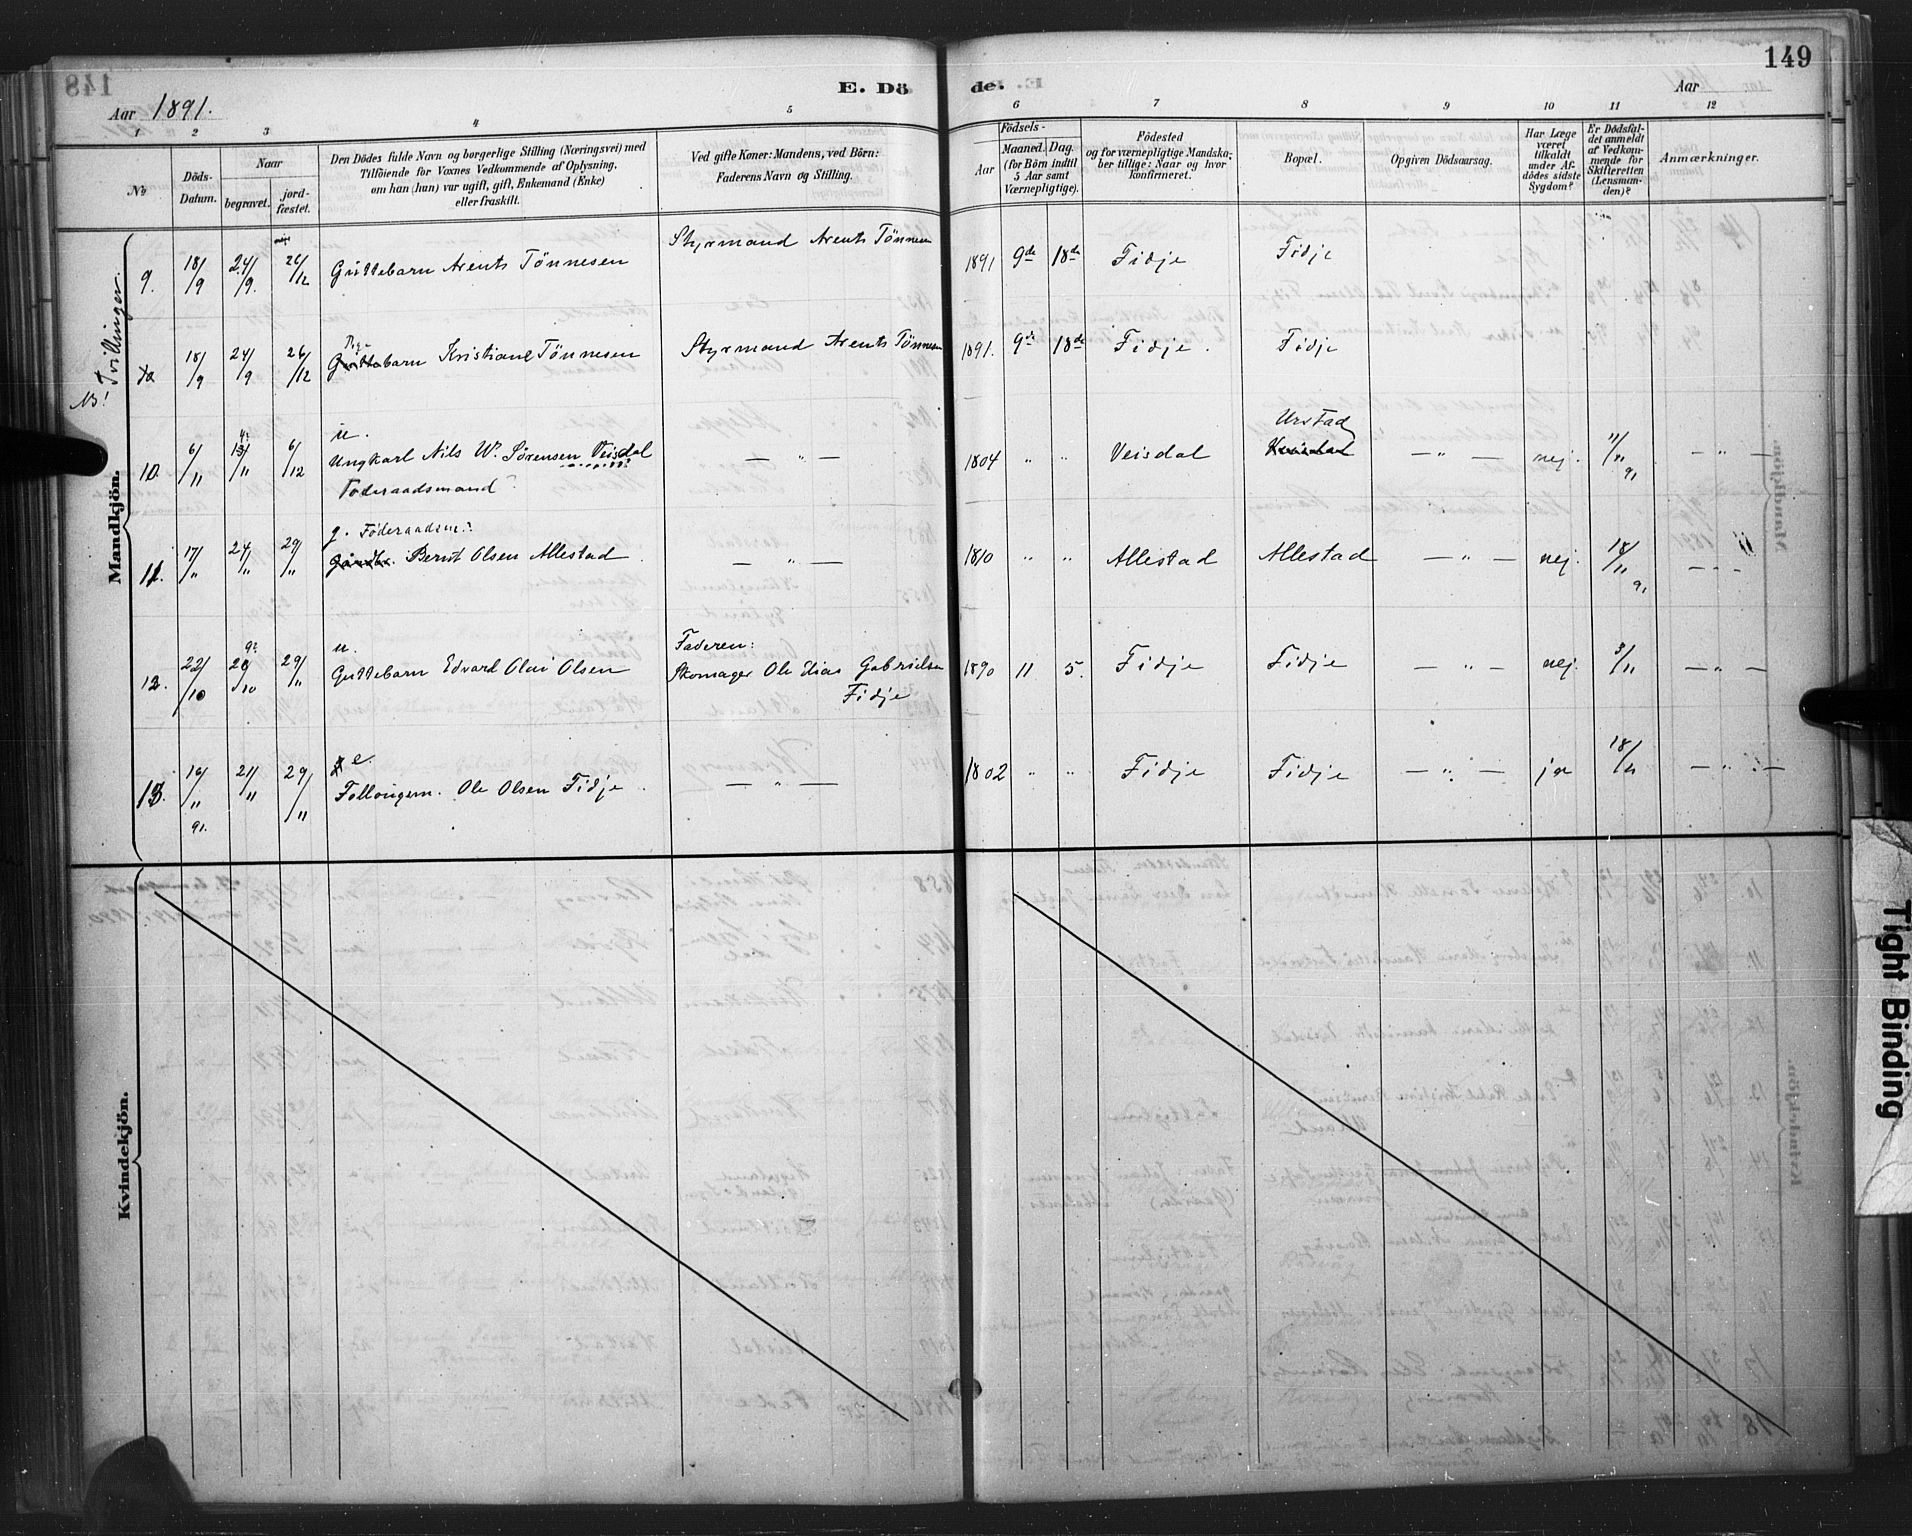 149
E. Döde.
Aar 1891.
Aar
1 2 3 4 5 6 7 8 9 10 11 12
No
Döds-Datum.
Naar
begravet.
jord-fæstet.
Den Dödes fulde Navn og borgerlige Stilling (Næringsvei) med
Tilföiende for Voxnes Vedkommende af Oplysning,
om han (hun) var ugift, gift, Enkemand (Enke)
eller fraskilt.
Ved gifte Koner: Mandens, ved Börn:
Faderens Navn og Stilling.
Födsels-
Aar
Maaned. Dag.
(for Börn indtil
5 Aar samt
Værnepligtige).
Födested
og for værnepligtige Mandska-
ber tillige: Naar og hvor
konfirmeret.
Bopæl.
Opgiven Dödsaarsag.
Har Læge
været
tilkaldt
under Af-
dödes sidste
Sygdom?
Er Dödsfal-
det anmeldt
af Vedkom-
mende for
Skifteretten
(Lensman-
den)?
Anmærkninger.
Mandkjön.
NB! Tvillinger.
9. 18/9 24/9. 26/12 Guttebarn Arents Tönnesen Styrmand Arents Tönnesen 1891 9de 18de Fidje Fidje
18/9 24/9 26/12 Pige Guttebarn Kristiane Tönnesen Styrmand Arents Tönnesen 1891. 9de 18de Fidje. Fidje
u.
10. 6/11 6/12 Ungkarl Nils W. Sörensen Veisdal — " — 1804 " " Veisdal Urstad — " — nej. 11/11 91 — " —
Föderaadsmand
g. Föderaadsm.
11. 17/" 24/" 29/" Bernt Olsen Allestad — " — 1810 " " Allestad Allestad — " — nej. 18/11 91 — " —
u. Faderen:
12. 22/10 28/10 29/" Guttebarn Edvard Olai Olsen Skomager Ole Elias Gabrielsen 1890 11 5. Fidje Fidje — " — nej. 3/11 — " —
Fidje
e.
13. 16/11 91. 21/11 29/11 Ole Olsen Fidje — " — 1802 " " Fidje Fidje — " — ja 18/11 — " —
Kvindekjön.
Tight Binding